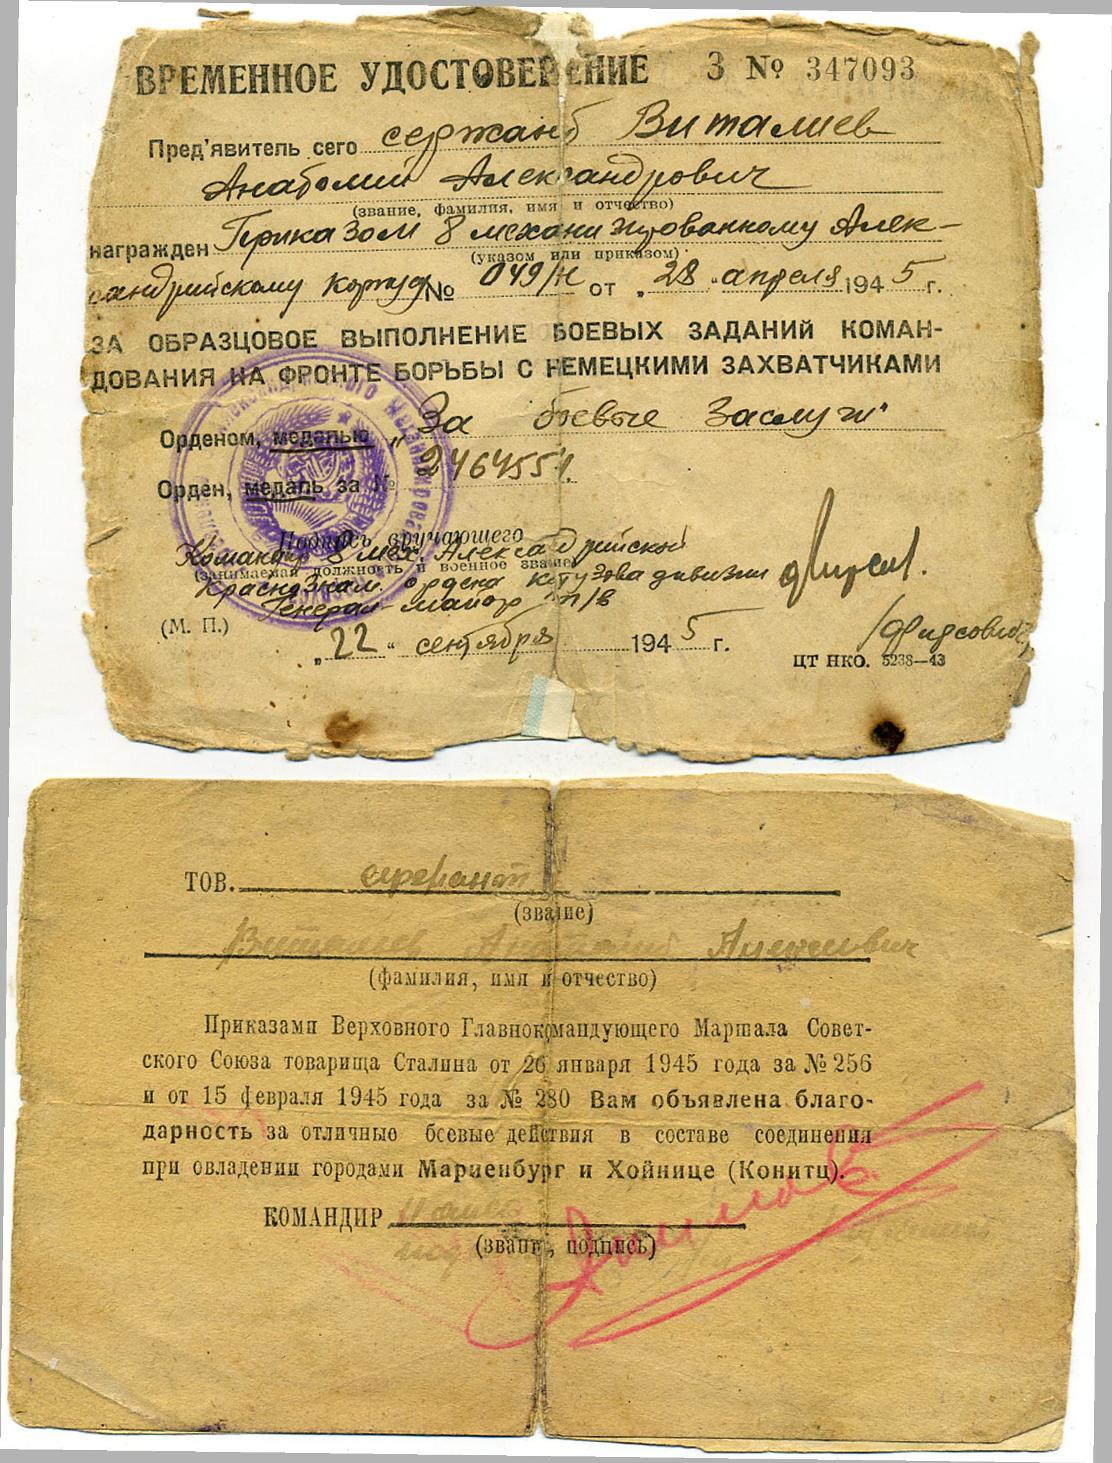 ВРЕМЕННОЕ УДОСТОВЕРЕНИЕ З № 347093
Пред'явитель сего сержант Виталиев
Анатолий Александрович
(звание, фамилия, имя и отчество)
награжден Приказом 8 механизированному Алек-
(указом или приказом)
сандрийскому корпусу № 049/н от „28" апреля 1945 г.
ЗА ОБРАЗЦОВОЕ ВЫПОЛНЕНИЕ БОЕВЫХ ЗАДАНИЙ КОМАН-
ДОВАНИЯ НА ФРОНТЕ БОРЬБЫ С НЕМЕЦКИМИ ЗАХВАТЧИКАМИ
Орденом, медалью „За боевые Заслуги"
Орден, медаль за № 2464551.
Подпись вручающего
Командир 8 мех. Александрийской
(занимаемая должность и военное звание)
Краснознам. ордена Кутузова дивизии
Генерал-майор т/в
(М. П.)
/Фирсович/
„22" сентября 1945 г.
ЦТ НКО. 5238—43
ТОВ. сержант
(звание)
Виталиев Анатолий
(фамилия, имя и отчество)
Приказами Верховного Главнокомандующего Маршала Совет-
ского Союза товарища Сталина от 26 января 1945 года за № 256
и от 15 февраля 1945 года за № 280 Вам объявлена благо-
дарность за отличные боевые действия в составе соединения
при овладении городами Мариенбург и Хойнице (Конитц).
КОМАНДИР
(звание, подпись)